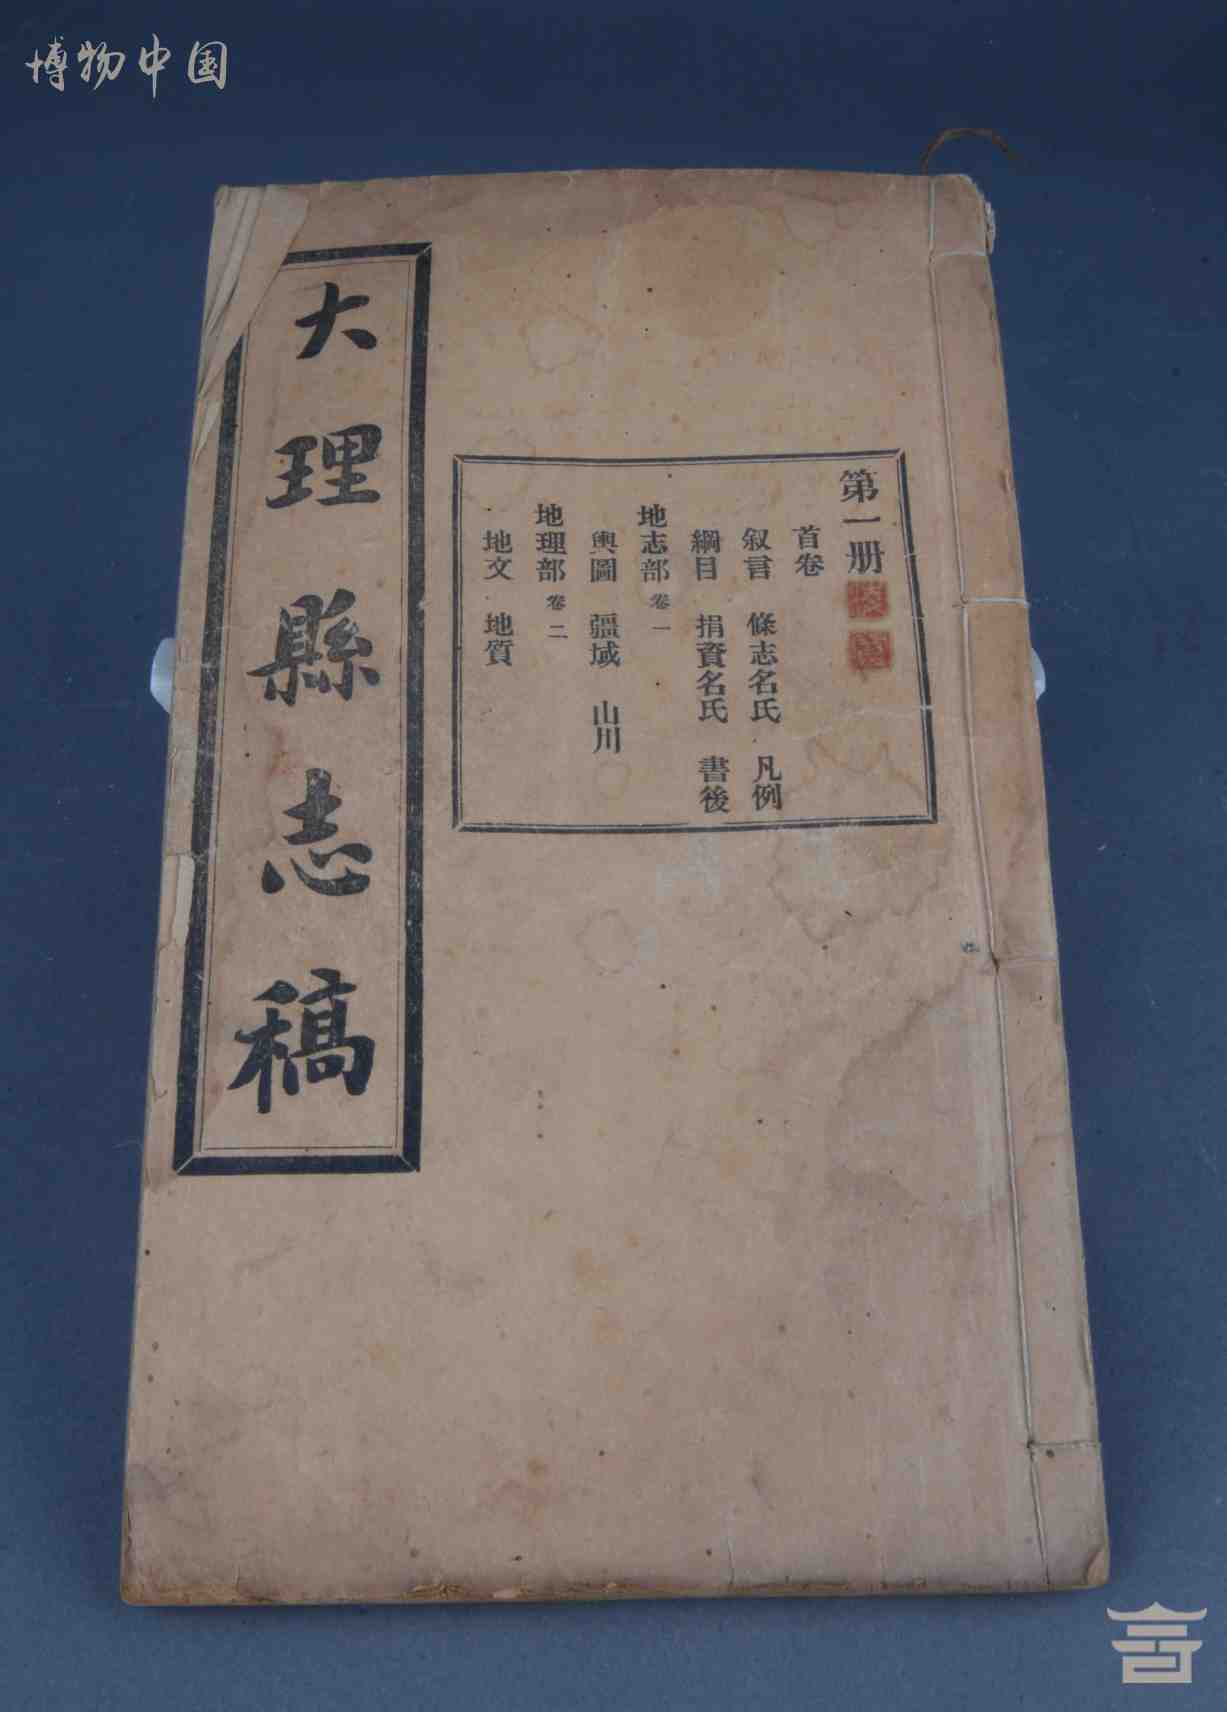 博物中国
第一册
首卷
叙言 條志名氏 凡例
綱目 捐資名氏 書後
地志部 卷一
輿圖 疆域 山川
地理部 卷二
地文 地質
大理縣志稿